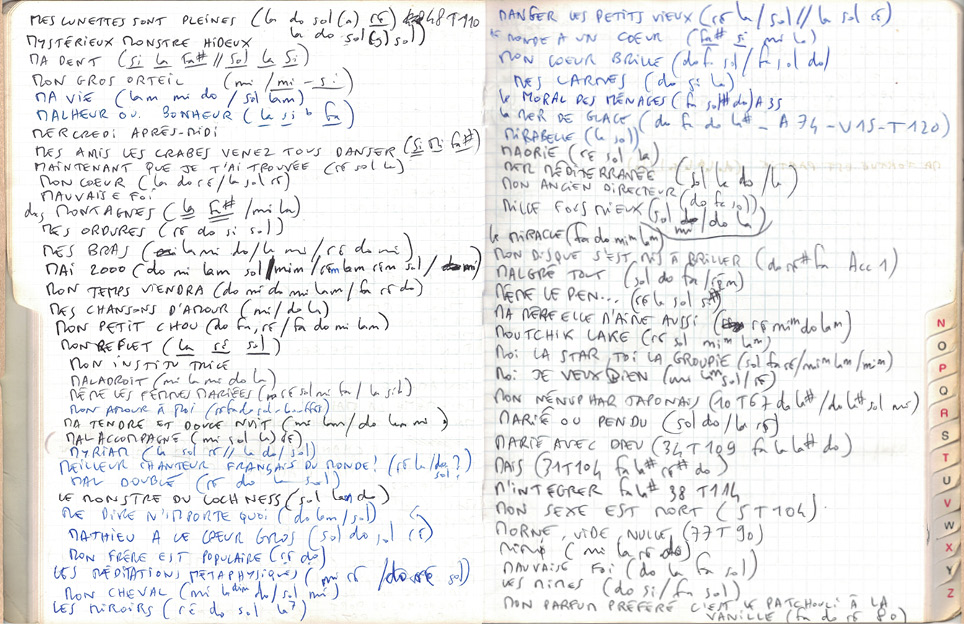 MES LUNETTES SONT PLEINES (la do sol (a) ré) 48 T110
la do sol (g) sol)
MYSTÉRIEUX MONSTRE HIDEUX
MA DENT (si la fa# // sol la si)
MON GROS ORTEIL (mi / mi - si)
MA VIE (lam mi do / sol lam)
MALHEUR OU BONHEUR (la si b fa)
MERCREDI APRÈS-MIDI
MES AMIS LES CRABES VENEZ TOUS DANSER (si mi fa#)
MAINTENANT QUE JE T'AI TROUVÉE (ré sol la)
MON COEUR (la do ré / la sol ré)
MAUVAISE FOI
des MONTAGNES (la fa# / mi la)
MES ORDURES (ré do si sol)
MES BRAS (la mi do / la mi / ré do mi)
MAI 2000 (do mi lam sol / mim / rém lam rém sol / mi)
MON TEMPS VIENDRA (do mi do mi lam / fa ré do)
MES CHANSONS D'AMOUR (mi / do la)
MON PETIT CHOU (do fa, ré / fa do mi lam)
MON REFLET (la ré sol)
MON INSTITUTRICE
MALADROIT (mi la mi do la)
MÊME LES FEMMES MARIÉES (ré sol mi fa / la si b)
MON AMOUR À MOI
MA TENDRE ET DOUCE NUIT (mi lam / do lam mi)
MAL ACCOMPAGNÉ (mi sol la ré)
MYRIAM (la sol ré // la do / sol)
MEILLEUR CHANTEUR FRANÇAIS DU MONDE! (ré la / do, sol ?)
MAL DOUBLÉ (ré do la sol)
LE MONSTRE DU LOCHNESS (sol lam do)
ME DIRE N'IMPORTE QUOI (do lam / sol)
MATHIEU A LE COEUR GROS (sol do sol ré)
MON FRÈRE EST POPULAIRE (ré do)
LES MÉDITATIONS MÉTAPHYSIQUES (mi ré / do ré sol)
MON CHEVAL (mi do / sol mi)
LES MIROIRS (ré do sol la?)
DANGER LES PETITS VIEUX (ré la / sol // la sol ré)
le MONDE A UN COEUR (fa# si mi la)
MON COEUR BRILLE (do fa sol / fa sol do)
MES LARMES (do si la)
le MORAL DES MÉNAGES (fa sol# do) A35
la MER DE GLACE (do fa do la# - A74 - V15 - T120)
MIRABELLE (la sol)
MAORIE (ré sol la)
MER MÉDITERRANÉE (sol la do / la)
MON ANCIEN DIRECTEUR (do fa sol)
MILLE FOIS MIEUX (sol mi / do la)
le MIRACLE (fa do mim lam)
MON DISQUE S'EST MIS À BRILLER (do ré# fa Acc 1)
MALGRÉ TOUT (sol do fa / rém)
MÊME LE PEN... (ré la sol si#)
MA MÈRE ELLE M'AIME AUSSI (ré mim do lam)
MOUTCHIK LAKE (ré sol mim lam)
MOI LA STAR TOI LA GROUPIE (sol fa ré / mim lam / mim)
MOI JE VEUX BIEN (mi lam sol / ré)
MON NENUPHAR JAPONAIS (10 T67 do la# / do la# sol mi)
MARIÉ OU PENDU (sol do / la ré)
MARIÉ AVEC DIEU (34 T109 fa la la# do)
MAIS (31 T104 fa la# ré# do)
M'INTEGRER fa la# 38 T114
MON SEXE EST MORT (5 T104)
MORNE, VIDE, NULLE (77 T90)
MIMI (mi la ré do)
MAUVAISE FOI (do la fa sol)
LES MIMES (do si / fa sol)
MON PARFUM PRÉFÉRÉ C'EST LE PATCHOULI À LA
VANILLE (fa do ré 80)
N
O
P
Q
R
S
T
U
V
W
X
Y
Z